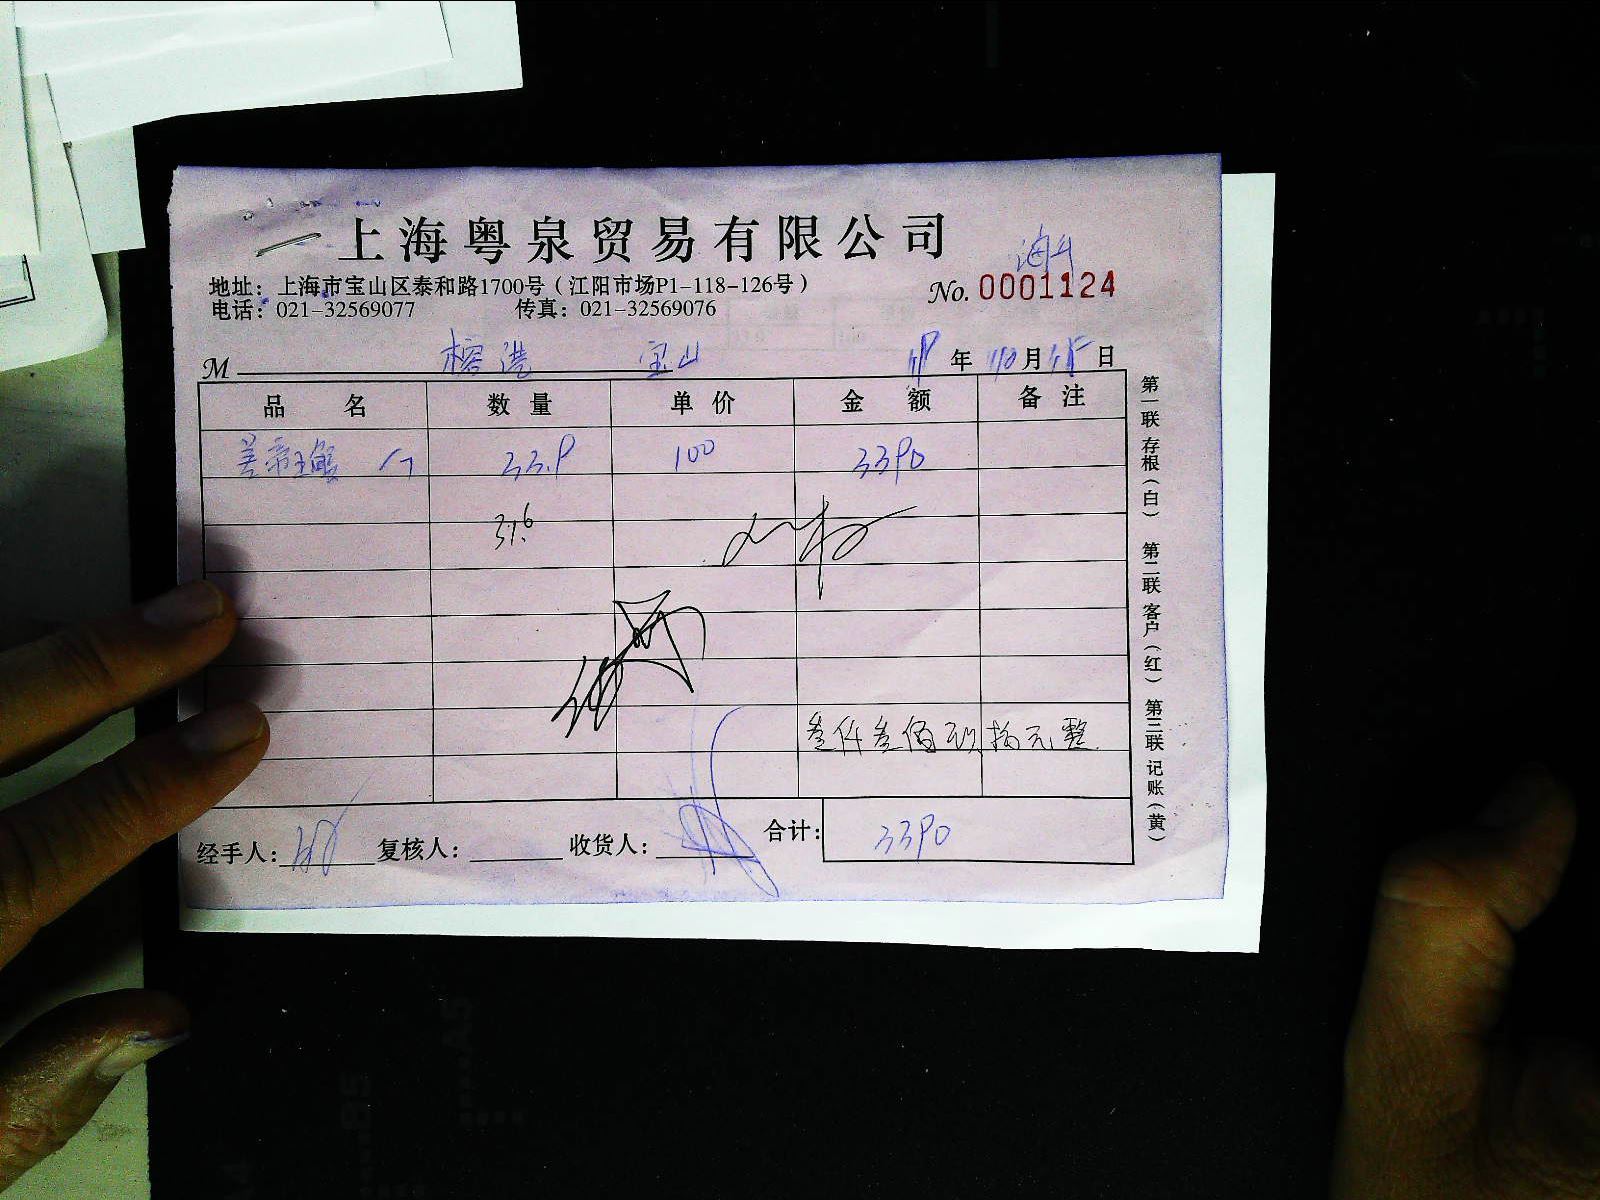 上海粤泉贸易有限公司
地址：上海市宝山区泰和路1700号（江阳市场P1-118-126号）
No. 0001124
电话：021-32569077 传真：021-32569076
M 榕港 宝山 年 10月15日
品名 数量 单价 金额 备注
美帝王蟹 33.9 100 3390
31.6
叁仟叁佰玖拾元整
经手人： 复核人： 收货人： 合计： 3390
第一联 存根（白） 第二联 客户（红） 第三联 记账（黄）